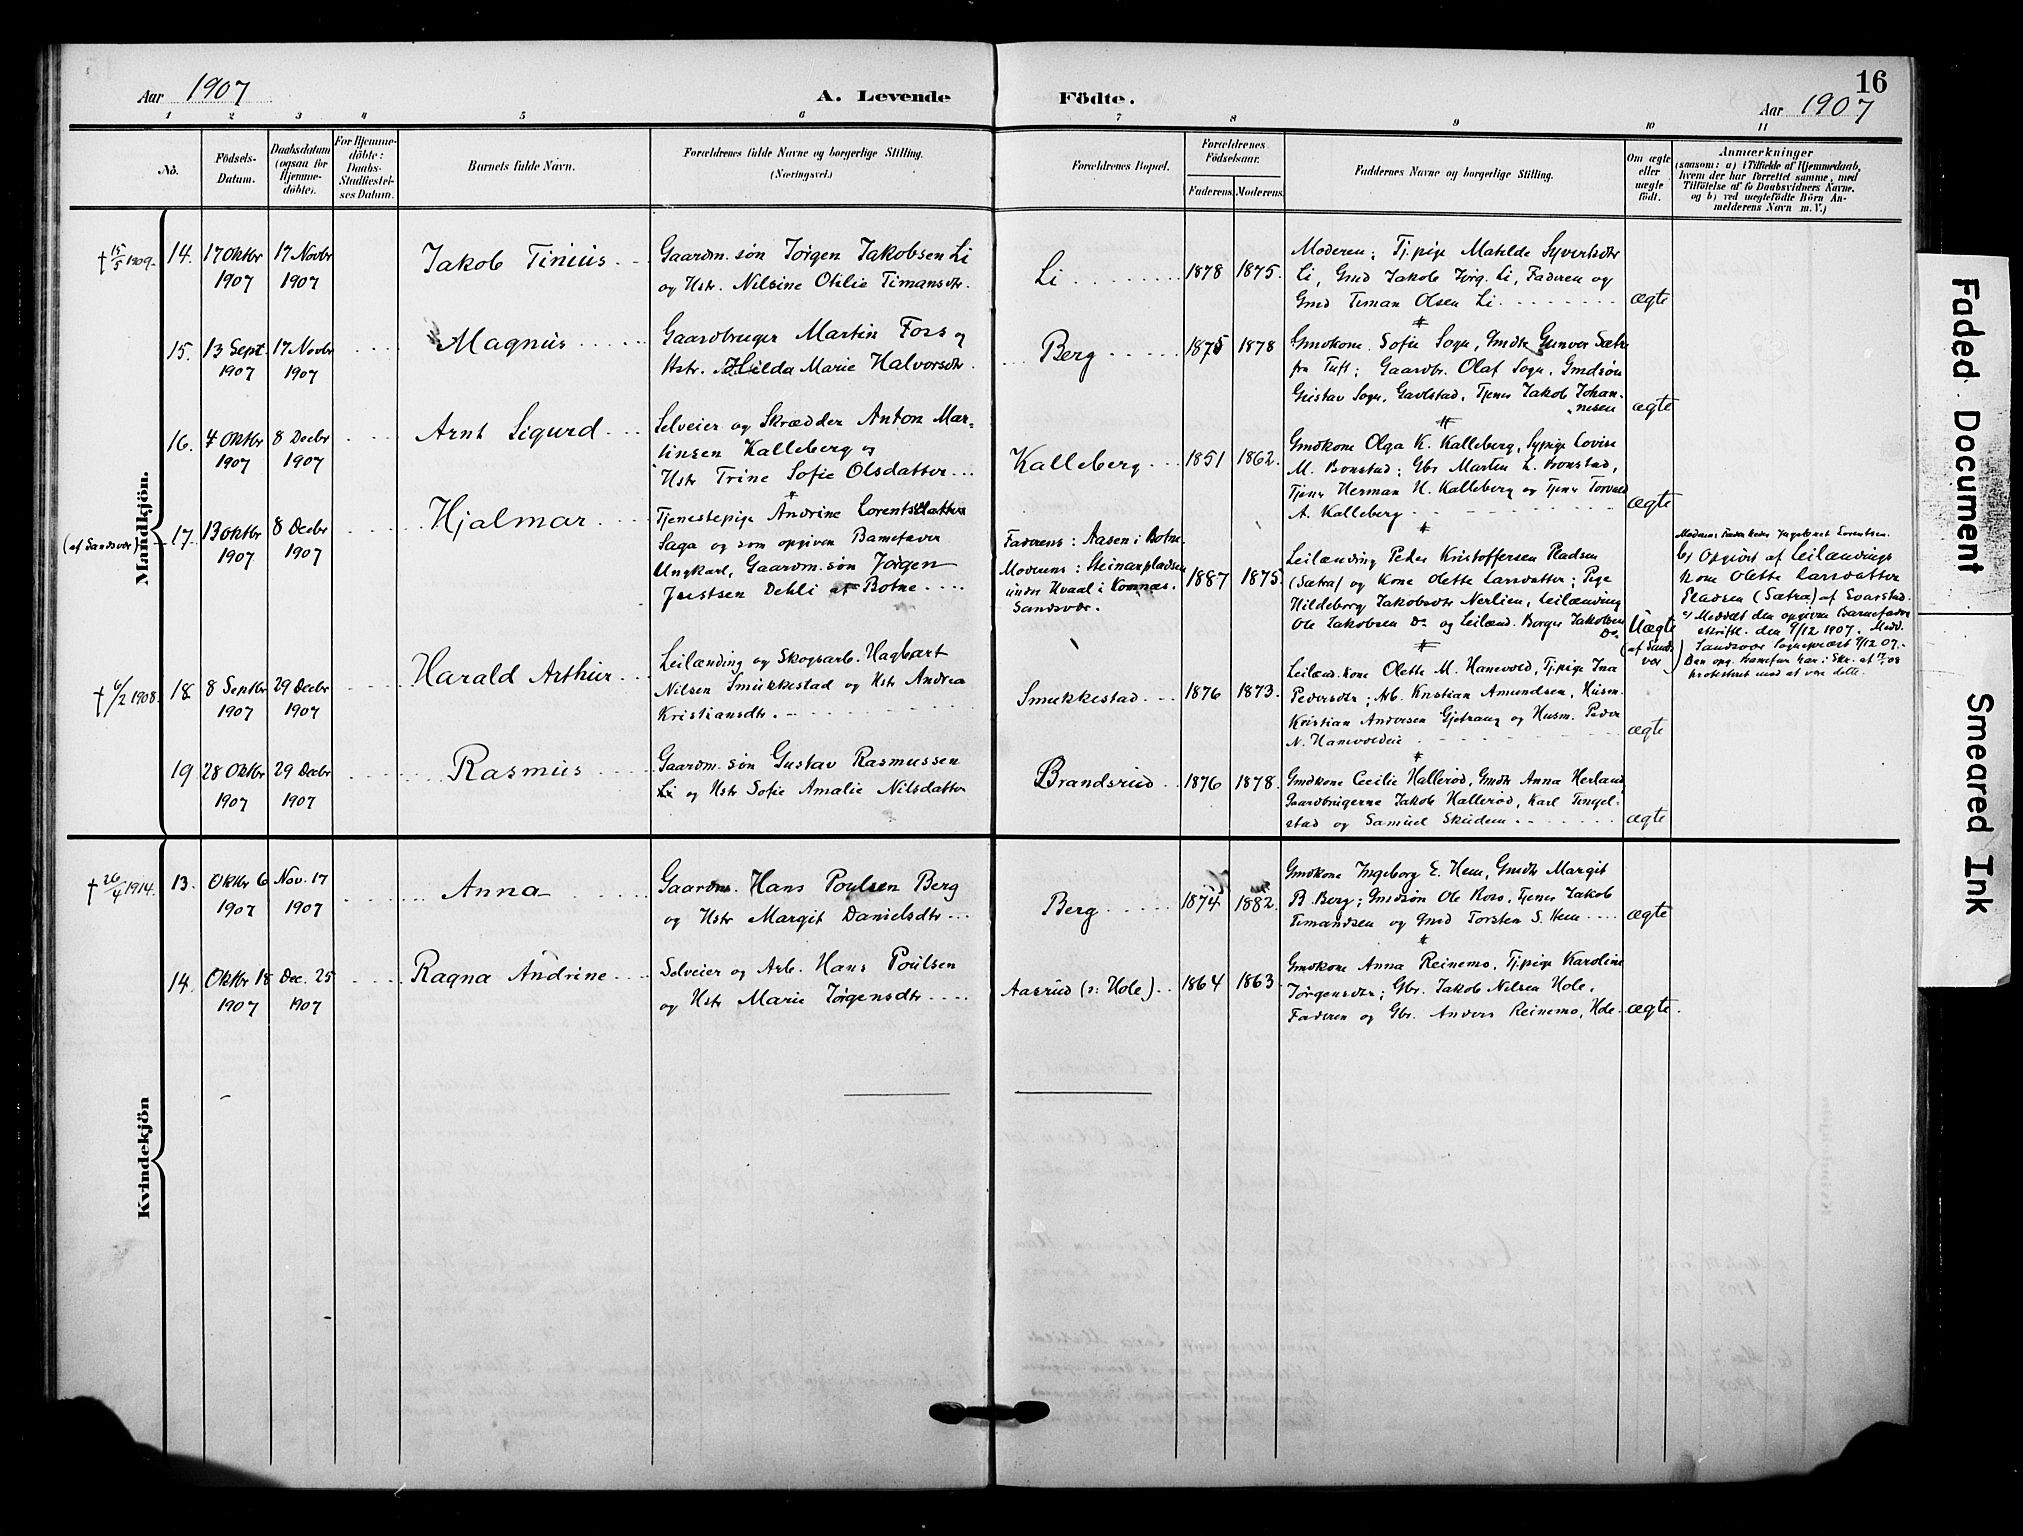 Aar 1907
A. Levende Födte.
16
Aar 1907
1 2 3 4 5 6 7 8 9 10 11
No.
Födsels-
Datum.
Daabsdatum
(ogsaa for
Hjemme-
döbte).
For Hjemme-
döbte:
Daabs-
Stadfæstel-
ses Datum.
Barnets fulde Navn.
Forældrenes fulde Navne og borgerlige Stilling.
(Næringsvei.)
Forældrenes Bopæl.
Forældrenes
Födselsaar.
Faderens. Moderens.
Faddernes Navne og borgerlige Stilling.
Om ægte
eller
uægte
födt.
Anmærkninger
(saasom: a) i Tilfælde af Hjemmedaab,
hvem der har forrettet samme, med
Tilföielse af to Daabsvidners Navne.
og b) ved uægtefödte Börn An-
melderens Navn m. V.)
Mandkjön.
† 15/5 1909.
14.
17 Oktbr
1907
17 Novbr
1907
Jakob Tinius
Gaardm. søn Jørgen Jakobsen Li
og Hstr. Nilsine Otilie Timansdtr.
Li
1878
1875.
Moderen; Tj.pige Matilde Syvertsdtr
Li, Gmd Jakob Jørg. Li, Faderen og
Gmd Timan Olsen Li.
ægte
15.
13 Sept.
1907
17 Novbr
1907
Magnus
Gaardbruger Martin Foss og
Hstr. Hilda Marie Halvorsdtr.
Berg
1875
1878
Gmdkone Sofie Sogn, Gmdtr Gunvor Sætre
fra Tuft; Gaardbr. Olaf Sogn, Gmdsøn
Gustav Sogn, Gavlstad, Tjener Jakob Johan-
nesen
ægte
16.
7 Oktbr
1907
8 Decbr
1907
Arnt Sigurd
Selveier og Skrædder Anton Mar-
tinsen Kalleberg og
Hstr Trine Sofie Olsdatter
Kalleberg
1851
1862.
Gmdkone Olga K. Kalleberg, Sypige Lovise
M. Bonstad; Gbr Marten L. Bonstad,
Tjener Herman H. Kalleberg og Tjener Torvald
A. Kalleberg
ægte
(af Sandsvær)
17.
13 Oktbr
1907
8 Decbr
1907
Hjalmar
Tjenestepige Andrine Lorentsdatter
Saga og som opgiven Barnefader
Ungkarl, Gaardm. søn Jørgen
Justsen Dehli af Botne
Faderens: Aasen i Botne.
Moderens: Steinarpladsen
under Kvaal i Komnæs.
Sandsvær.
1887
1875.
Leilænding Peder Kristoffersen Pladsen
(Sætra) og Kone Olette Larsdatter; Pige
Hildeborg Jakobsdtr Nerlien, Leilænding
Ole Jakobsen Do og Leilænd. Borger Jakobsen
Do.
Uægte
(af Sands-
vær)
Moderens Fader hedes Ingebret Lorentsen.
b) Opgivet af Leilændings
kone Olette Larsdatter
Pladsen (Sætra) af Svarstad.
c) Meddelt den opgivne Barnefader
skriftl. den 9/12 1907. Medd.
Sandsvær Sognepræst 9/12 07.
Den opg. barnefar har i Skr. af
protestert mod at være dette.
† 6/2 1908.
18.
8 Septbr
1907
29 Decbr
1907
Harald Arthur
Leilænding og Skogsarb. Hagbart
Nilsen Smukkestad og Hstr Andrea
Kristiansdtr.
Smukkestad
1876
1873.
Leilænd.kone Olette M. Hanevold, Tj.pige Ina
Pedersdtr; Arb. Kristian Amundsen, Husm.
Kristian Andersen Gjetrang og Husm. Peder
N. Hanevoldeie
ægte
19
28 Oktbr
1907
29 Decbr
1907
Rasmus
Gaardm. søn Gustav Rasmussen
Li og Hstr Sofie Amalie Nilsdatter
Brandsrud
1876
1878.
Gmdkone Cecilie Hallerød, Gmdtr Anna Herland
Gaardbrugerne Jakob Hallerød, Karl Tingel-
stad og Samuel Skudem
ægte
Kvindekjön
† 26/4 1914.
13.
Oktbr 6
1907
Nov. 17
1907
Anna
Gaardm. Hans Poulsen Berg
og Hstr Margit Danielsdtr
Berg
1874
1882.
Gmdkone Ingeborg E. Hem, Gmdtr Margit
B. Berg; Gmdsøn Ole Foss, Tjener Jakob
Timandsen og Gmd Torsten S. Hem
ægte
14.
Oktbr 18
1907
Dec. 25
1907
Ragna Andrine
Selveier og Arb. Hans Poulsen
og Hstr Marie Jørgensdtr
Aasrud (v: Hole)
1864
1863
Gmdkone Anna Reinemo, Tj.pige Karoline
Jørgensdtr; Gbr. Jakob Nilsen Hole,
Faderen og Gbr. Anders Reinemo, Hole.
ægte.
Faded Document
Smeared Ink